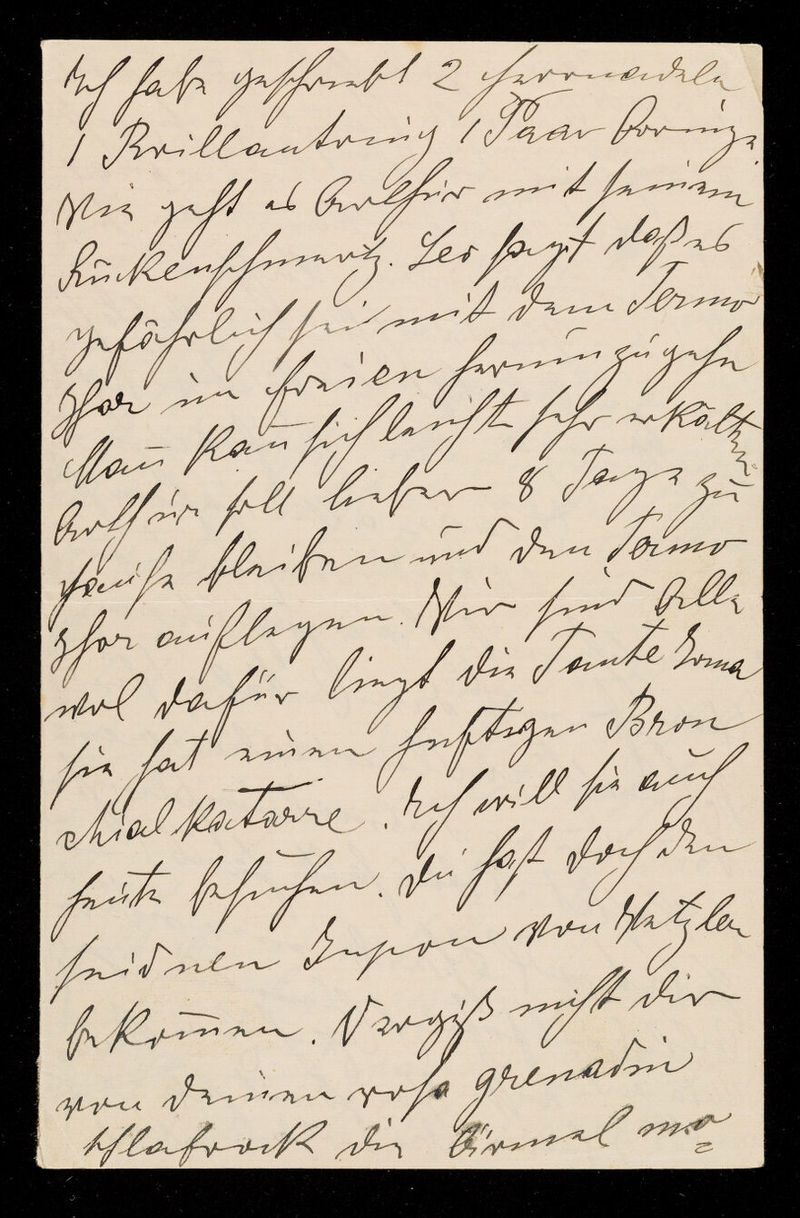 Ich habe geschenkt 2 Herrnadeln
1 Brillantring 1 Paar Orringe
Wie geht es Arthur mit seinem
Rückenschmertz. Leo sagt daß es
gefährlich sei mit dem Termo
phor im freien herumzugehn
Man̄ kan̄ sich leicht sehr erkälten
Arthur soll lieber 8 Tage zu
Hause bleiben und den Termo
phor auflegen. Wir sind Alle
wol dafür liegt die Tante Irma
sie hat einen heftigen Bron
chialkatarre. Ich will sie auch
heute besuchen. Du hast doch den
seidnen Jupon von Wetzler
bekom̄en. Vergiß nicht dir
von deinen rosa grenadin
schlafrock die Ärmel ma=